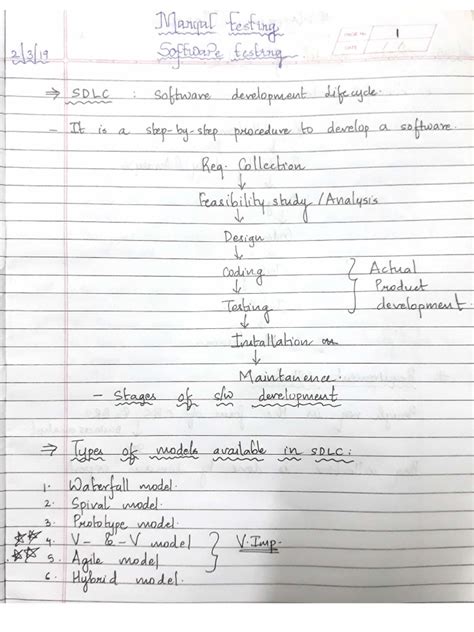 Manual testing
PAGE NO. 1
DATE
2/3/19 Software testing
⇒ SDLC : Software development life cycle.
- It is a step-by-step procedure to develop a software.
Req. Collection
↓
Feasibility study / Analysis
↓
Design
↓
Coding
↓
Testing
} Actual Product development.
↓
Installation
↓
Maintanence.
- Stages of s/w development
⇒ Types of models available in SDLC:
1. Waterfall model.
2. Spiral model.
3. Prototype model.
4. V- & -V model
5. Agile model
} V. Imp.
6. Hybrid model.